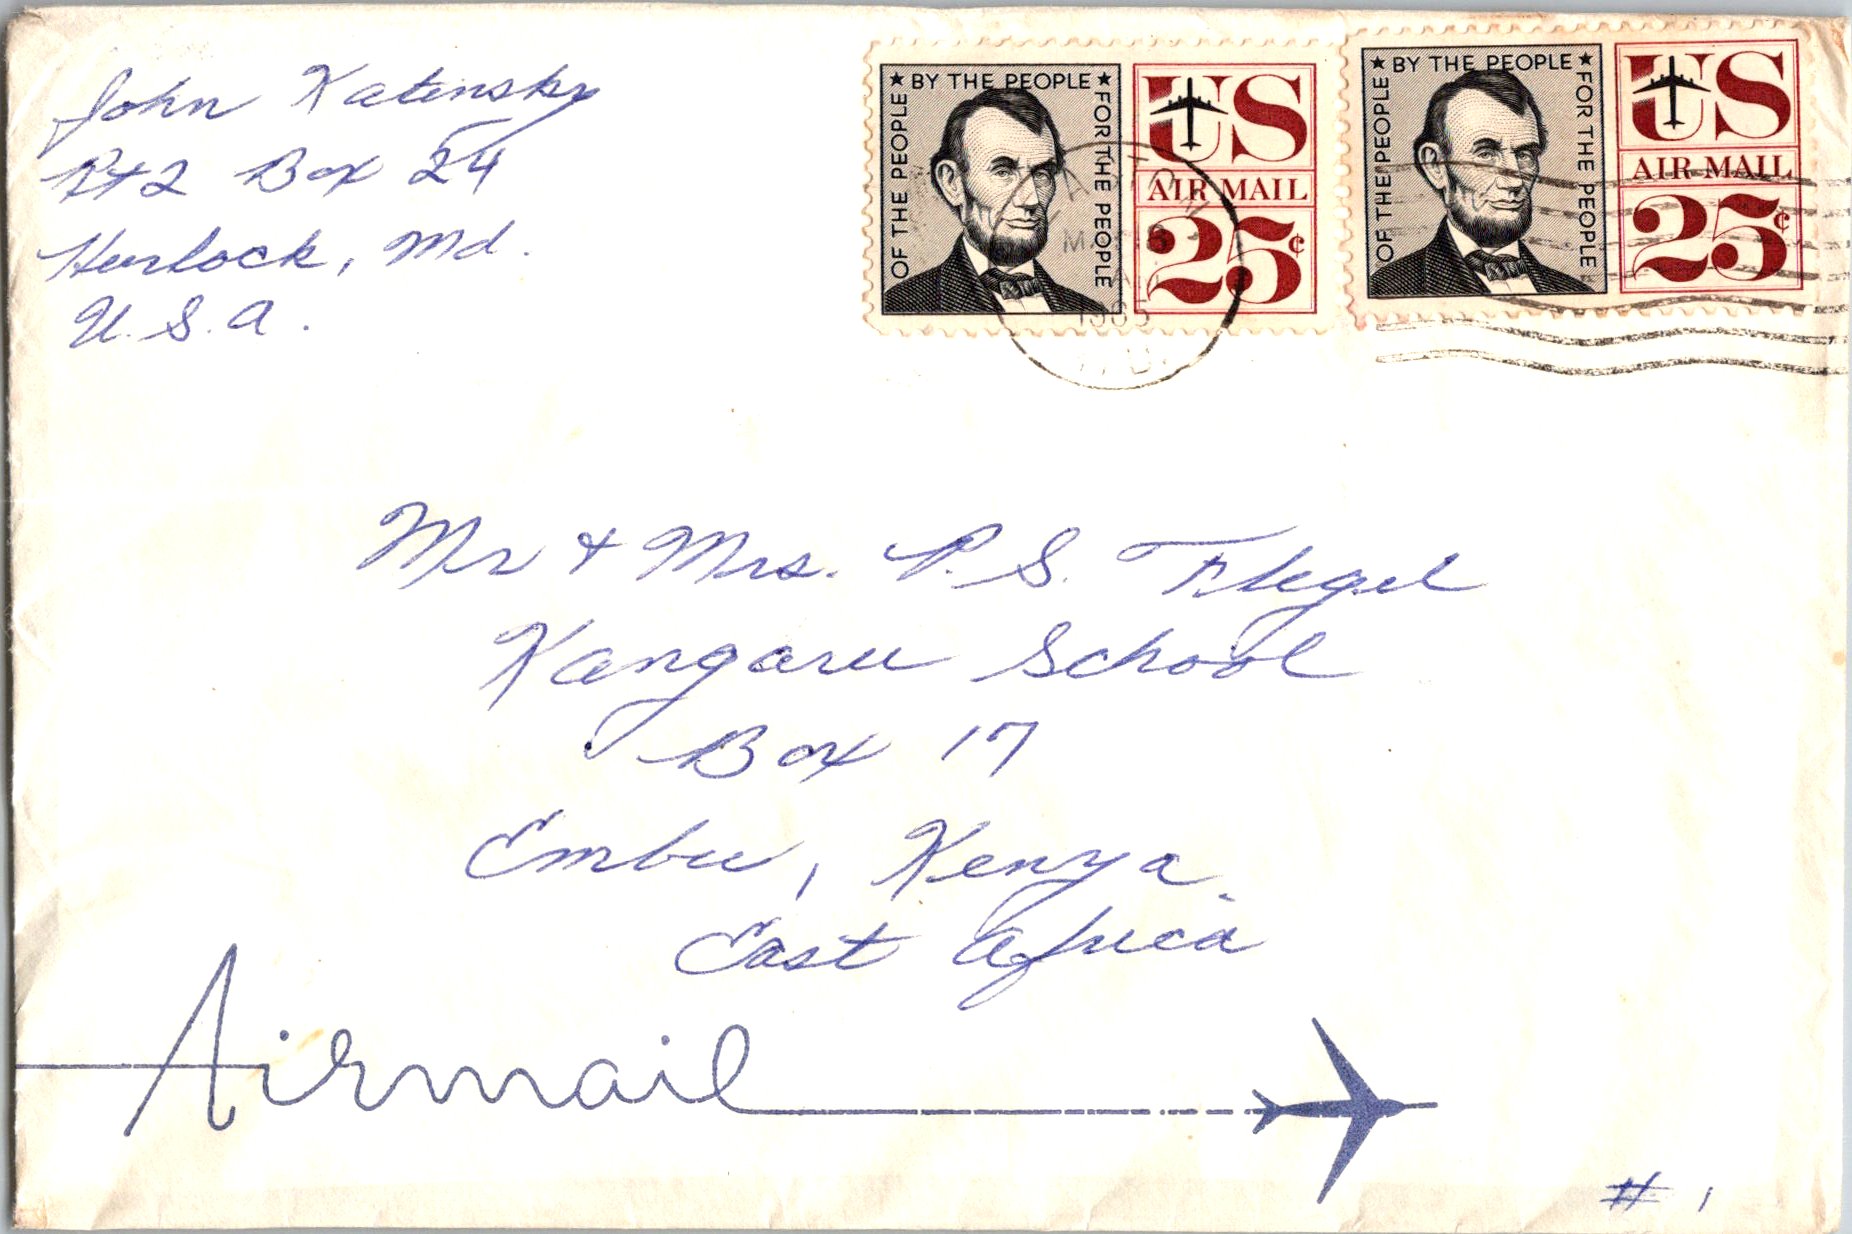 John Katensky
Rt 2 Box 24
Hurlock, Md.
U.S.A.
OF THE PEOPLE ★ BY THE PEOPLE ★ FOR THE PEOPLE
US
AIR MAIL
25¢
OF THE PEOPLE ★ BY THE PEOPLE ★ FOR THE PEOPLE
US
AIR MAIL
25¢
1965
Mr & Mrs. P. S. Flegel
Kangaru School
Box 17
Embu, Kenya.
East Africa
Airmail
# 1